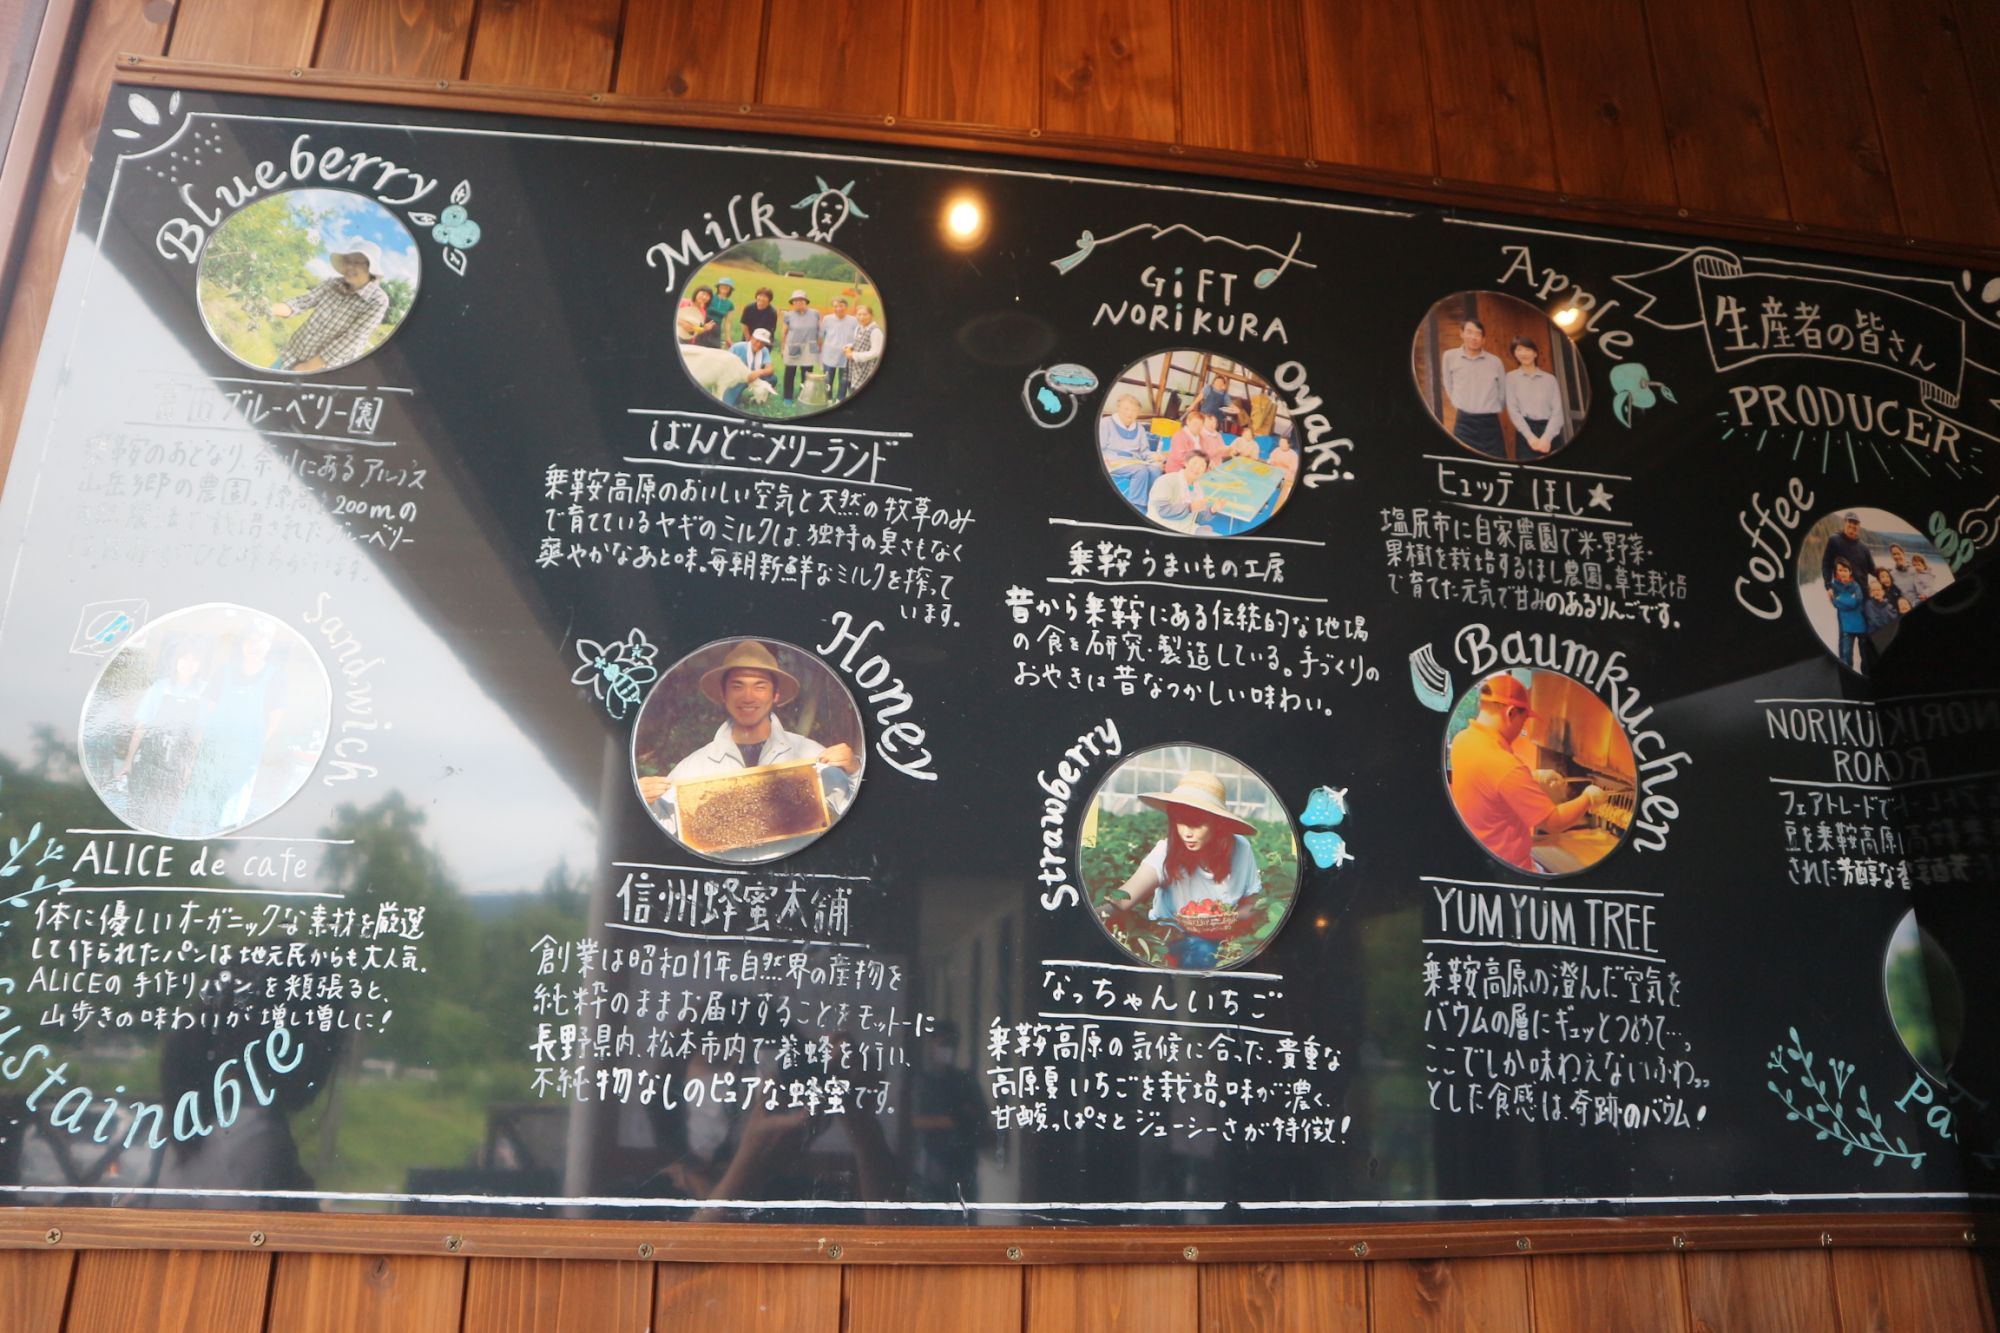 Blueberry
ブルーベリー園
アルプス
山岳郷の農園。標高1200mの
ブルーベリー
Milk
ばんどこメリーランド
乗鞍高原のおいしい空気と天然の牧草のみ
で育てているヤギのミルクは、独特の臭さもなく
爽やかなあと味。毎朝新鮮なミルクを搾って
います。
GiFT
NORiKURA
Oyaki
乗鞍うまいもの工房
昔から乗鞍にある伝統的な地場
の食を研究・製造している。手づくりの
おやきは昔なつかしい味わい。
Apple
ヒュッテ ほし★
塩尻市に自家農園で米・野菜・
果樹を栽培するほし農園。草生栽培
で育てた元気で甘みのあるりんごです。
生産者の皆さん
PRODUCER
Coffee
NORIKU
ROA
フェアトレードで
豆を乗鞍高原
された芳醇な
Sandwich
ALICE de cafe
体に優しいオーガニックな素材を厳選
して作られたパンは地元民からも大人気。
ALICEの手作りパンを頬張ると、
山歩きの味わいが増し増しに!
sustainable
Honey
信州蜂蜜本舗
創業は昭和11年。自然界の産物を
純粋のままお届けすることをモットーに
長野県内、松本市内で養蜂を行い、
不純物なしのピュアな蜂蜜です。
Strawberry
なっちゃんいちご
乗鞍高原の気候に合った、貴重な
高原夏いちごを栽培。味が濃く、
甘酸っぱさとジューシーさが特徴!
Baumkuchen
YUM YUM TREE
乗鞍高原の澄んだ空気を
バウムの層にギュッとつめて…。
ここでしか味わえないふわっ
とした食感は、奇跡のバウム!
Pa